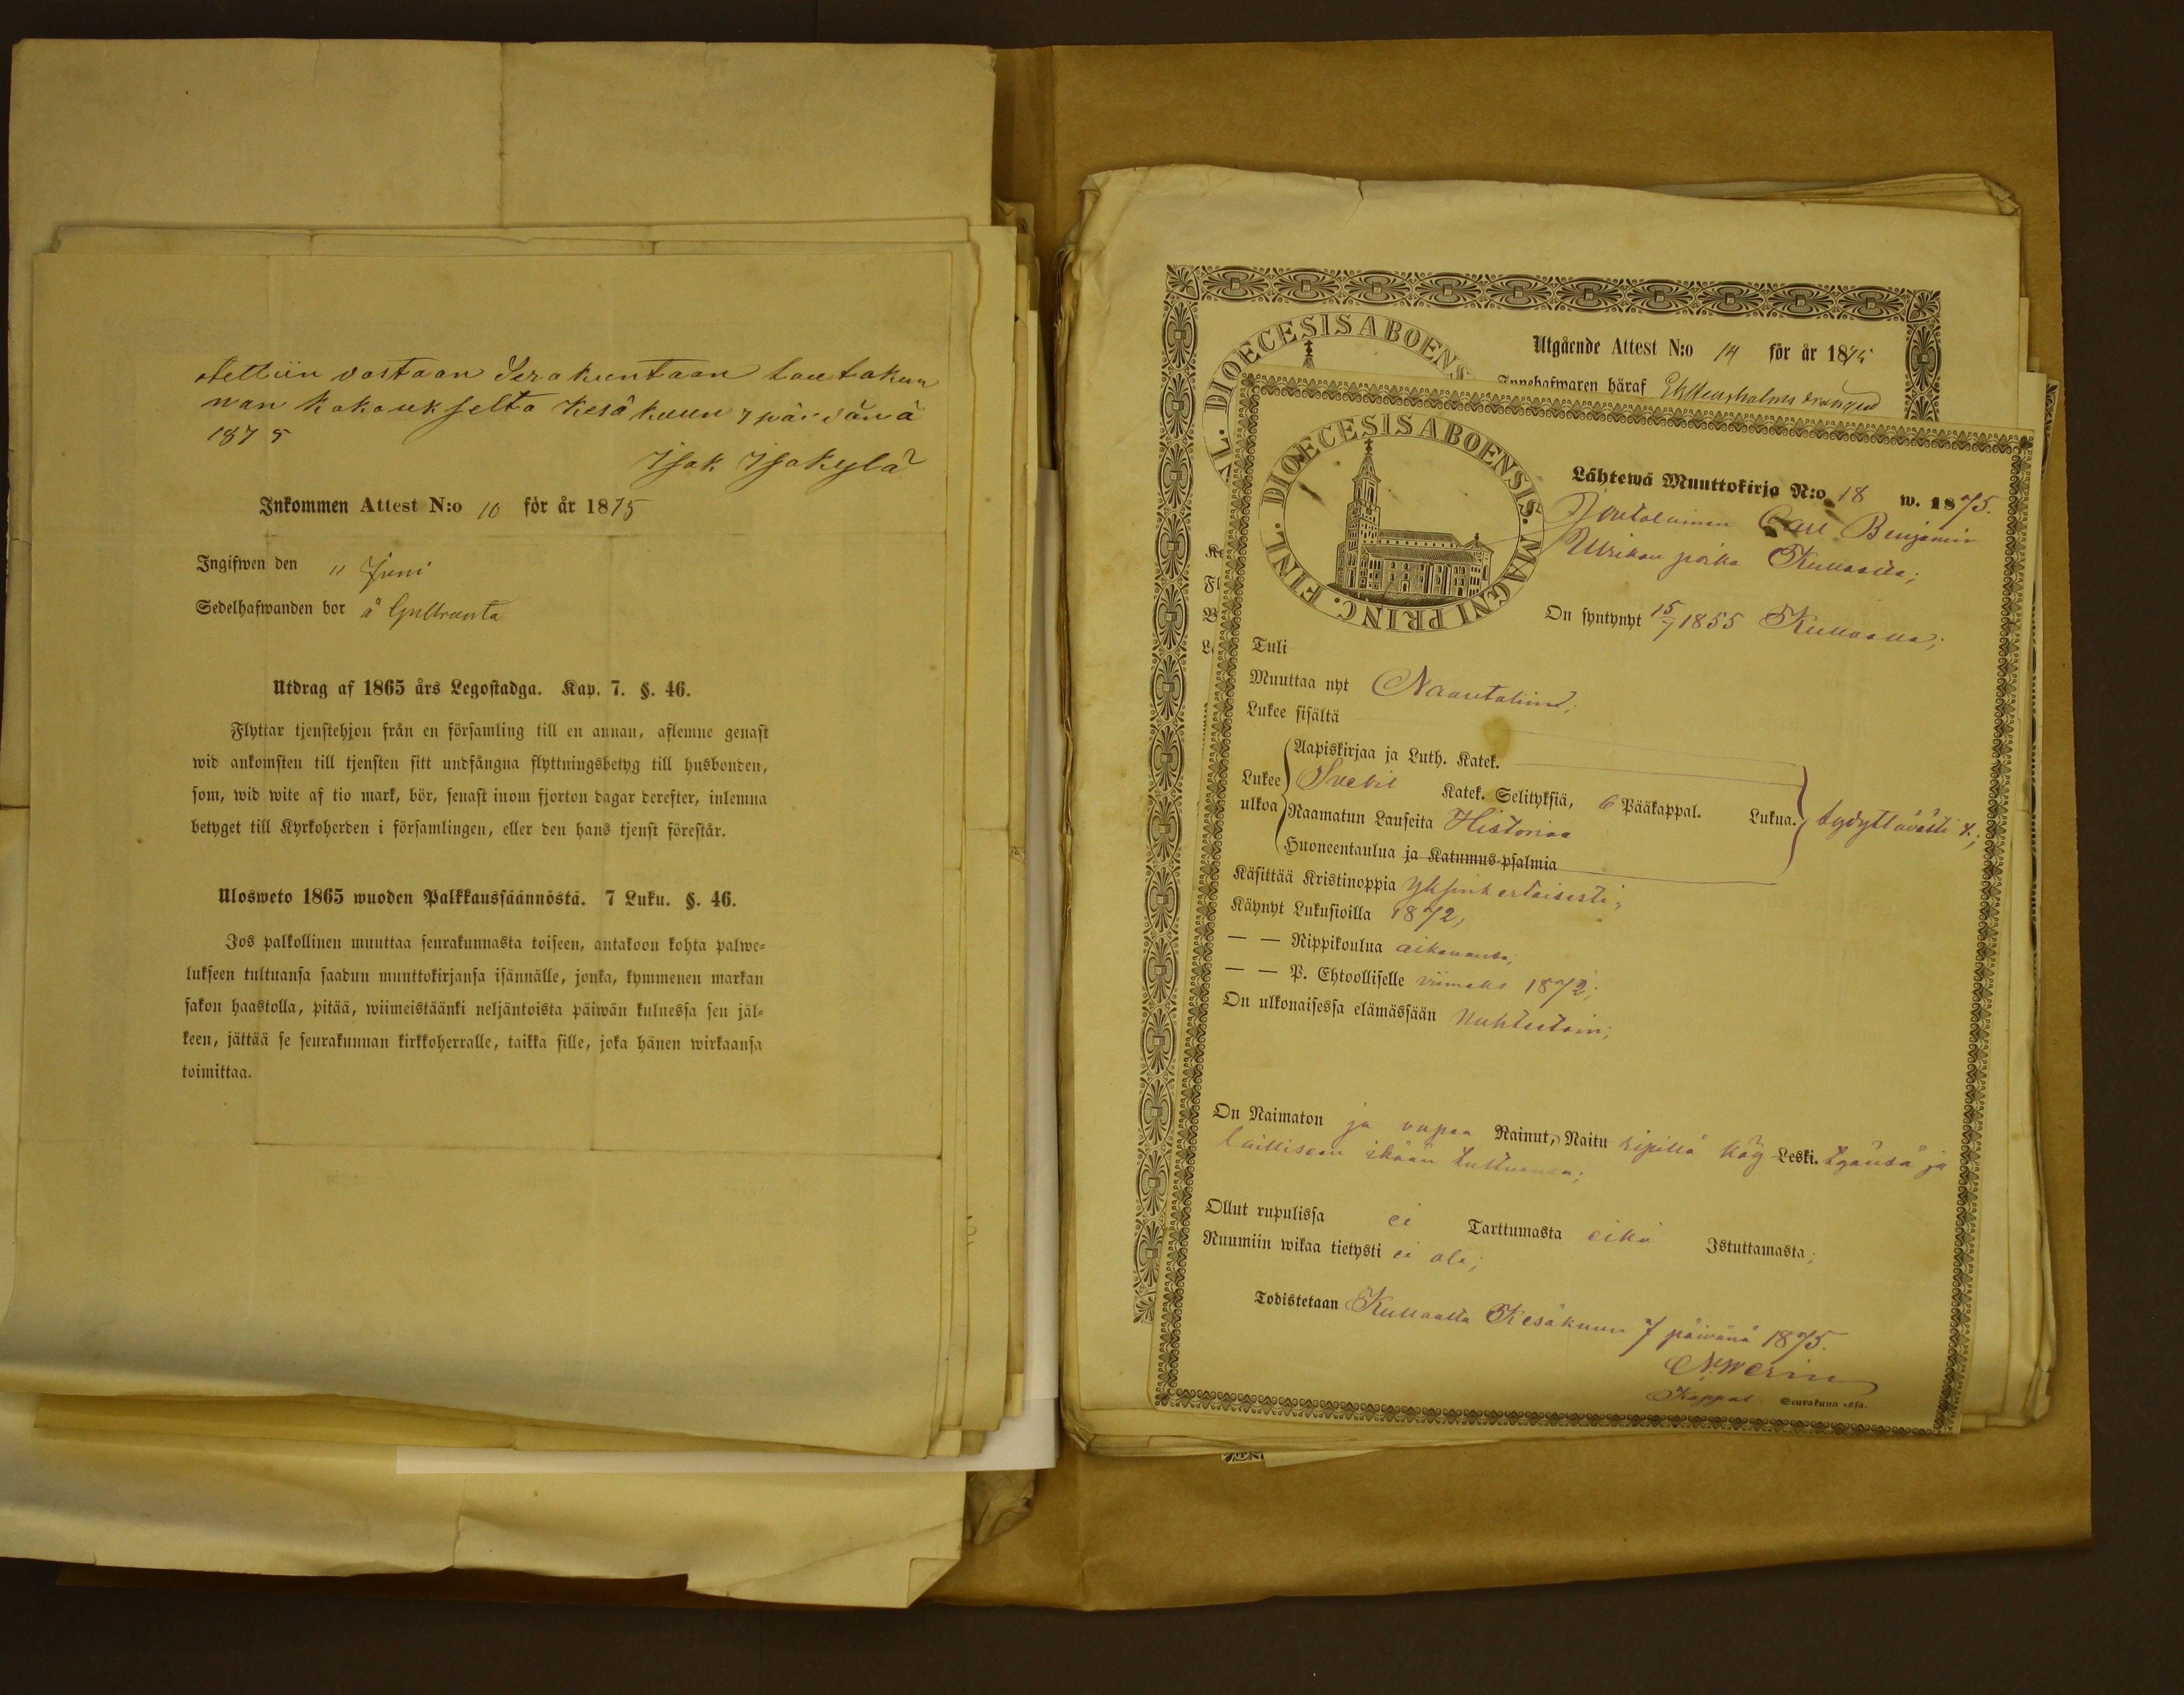 otettiin vastaan Seurakuntaan lautakun
nan kokoukselta Kesäkuun 7 päivänä
1875
Isak Isokylä
Inkommen Attest N:o 10 för år 1875
Ingifwen den " Juni
Sedelhafwanden bor å Gullranta
Utdrag af 1865 års Legostadga. Kap. 7. §. 46.
Flyttar tjenstehjon från en församling till en annan, aflemne genast
wid ankomsten till tjensten sitt undfångna flyttningsbetyg till husbonden,
som, wid wite af tio mark, bör, senast inom fjorton dagar derefter, inlemna
betyget till Kyrkoherden i församlingen, eller den hans tjenst förestår.
Ulosweto 1865 wuoden Palkkaussäännöstä. 7 Luku. §. 46.
Jos palkollinen muuttaa seurakunnasta toiseen, antakoon kohta palwe-
lukseen tultuansa saadun muuttokirjansa isännälle, jonka, kymmenen markan
sakon haastolla, pitää, wiimeistäänki neljäntoista päiwän kuluessa sen jäl-
keen, jättää se seurakunnan kirkkoherralle, taikka sille, joka hänen wirkaansa
toimittaa.
DIOECESIS ABOENS
Utgående Attest N:o 14 för år 1875
Innehafwaren häraf
DIOECESIS ABOENSIS. MAGNI PRINC. FINL.
Lähtewä Muuttokirja N:o 18 w. 1875.
Carl Benjamin
poika
On syntynyt 15/7 1855 Kullaalla;
Tuli
Muuttaa nyt Naantaliin;
Lukee sisältä
Aapiskirjaa ja Luth. Katek.
Lukee ulkoa Svebil Katek. Selityksiä, 6 Pääkappal. Lukua. tydyttävästi
Raamatun Lauseita Historiaa
Huoneentaulua ja Katumus-psalmia
Käsittää Kristinoppia yksinkertaisesti;
Käynyt Lukusioilla 1872,
— — Rippikoulua aikananta;
— — P. Ehtoolliselle viimeks 1872;
On ulkonaisessa elämässään nuhteetoin;
On Naimaton ja vapaa Nainut, Naitu ripillä käy Leski. tyänsä ja
lailliseen ikään tultuansa;
Ollut rupulissa ei Tarttumasta eikä Istuttamasta;
Ruumiin wikaa tietysti ei ole;
Todistetaan Kullaalla Kesäkuun 7 päivänä 1875.
Kappal. Seurakunn -ssa.